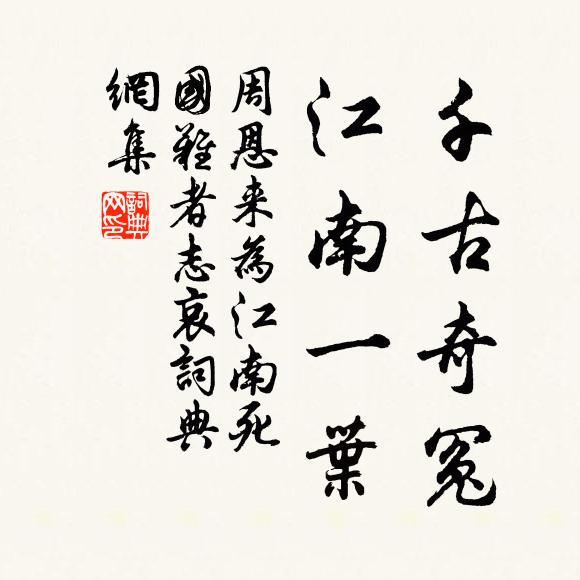 千古奇冤
江南一葉
周恩来為江南死
國難者志哀詞典
網集
詞典
网印